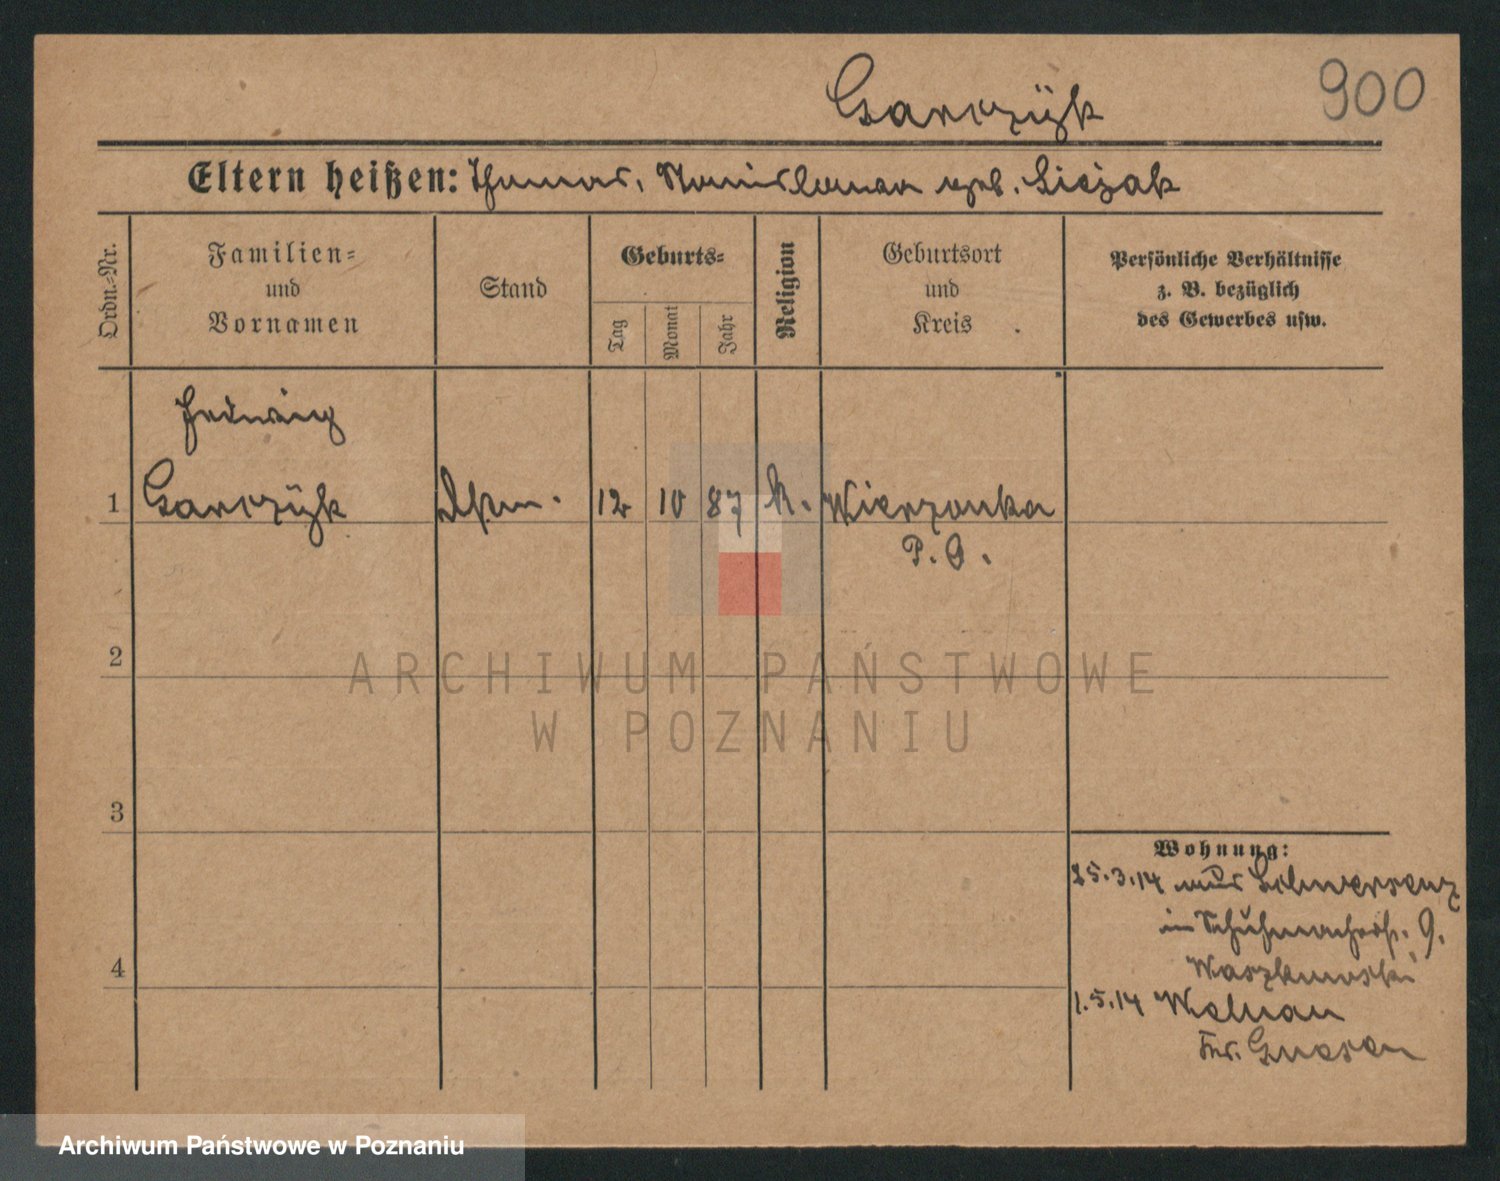 Garczÿk
900
Eltern heißen: Thomas, Stanislawa geb. Liczak
Ordn.-Nr.
Familien= und Vornamen
Stand
Geburts=
Tag
Monat
Jahr
Religion
Geburtsort und Kreis
Persönliche Verhältnisse
z. B. bezüglich
des Gewerbes usw.
Hedwig
1 Garczÿk 12 10 87 K. Wierzonka
P. O.
2
3
4
ARCHIWUM PAŃSTWOWE
W POZNANIU
Wohnung:
25.3.14 aus Schwersenz
in Schuhmacherstr. 9.
1.5.14 Welnau
Kr. Gnesen
Archiwum Państwowe w Poznaniu